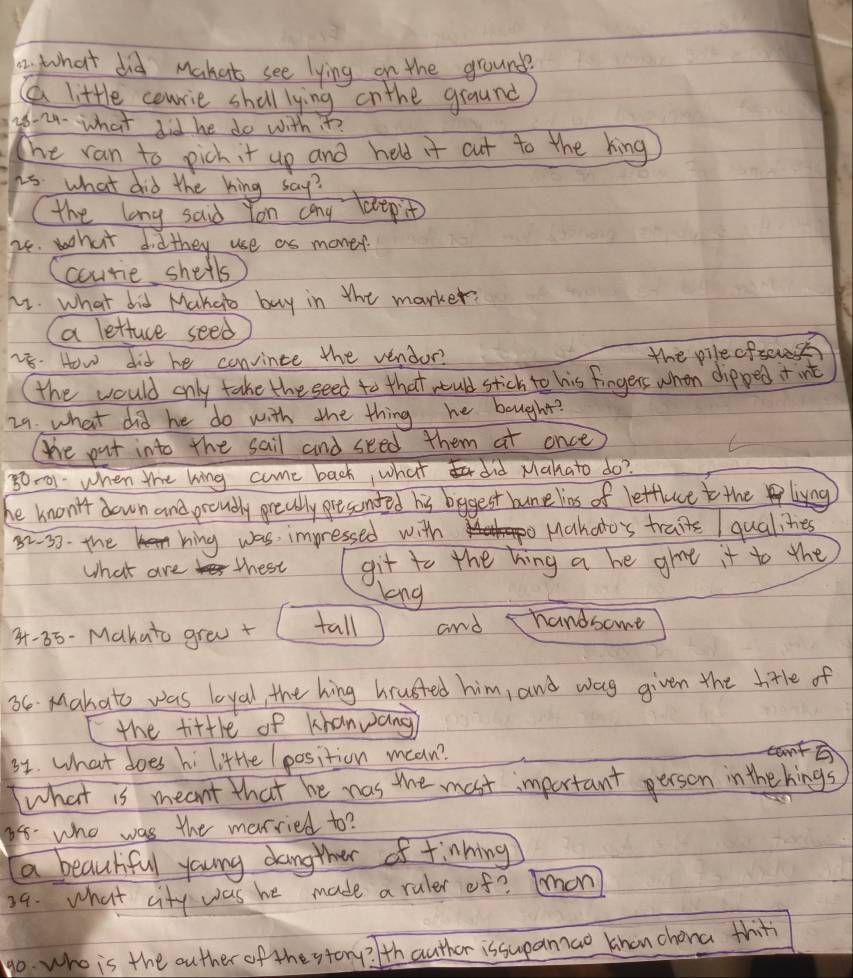 22. What did Makato see lying on the ground?
a little cowrie shell lying on the ground
23-24- what did he do with it?
he ran to pich it up and held it out to the king
25. what did the king say?
the long said You cany keep it
26. what did they use as money.
courie shells
27. what did Makato buy in the market?
a lettuce seed
28. How did he convince the vendor? the pile of
the would only take the seed to that would stich to his fingers when dipped it int
29. what did he do with the thing he bought?
He put into the sail and seed them at once
30-31- when the king came back, what did Makato do?
he knontt down and proudly preudly presunted his biggest of lettluce to the liyng
32-33- the hing was impressed with Makato's traits / qualities
what are these git to the hing a he give it to the
long
34-35- Makato grew + tall and handsome
36. Makato was loyal, the hing hrusted him, and was given the title of
the tittle of khanwang
37. what does hi little / position mean?
what is meant that he nas the most important person in the hings
38- who was the married to?
a beautiful young dangther of tinhing
39. what city was he made a ruler of? mon
40. who is the outher of the story? th author issupannao khonchona thiti